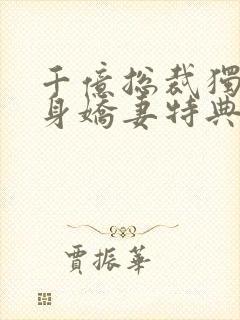 千億總裁獨
身嬌妻特典
賈振華